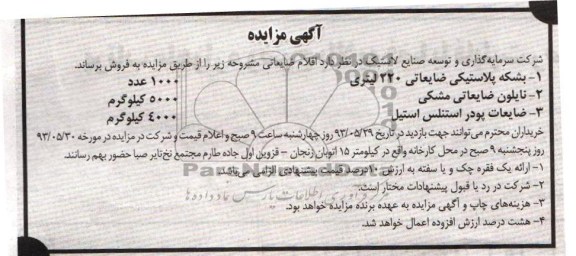 آگهی مزایده
شرکت سرمایه‌گذاری و توسعه صنایع لاستیک در نظر دارد اقلام ضایعاتی مشروحه زیر را از طریق مزایده به فروش برساند.
۱- بشکه پلاستیکی ضایعاتی ۲۲۰ لیتری ۱۰۰۰ عدد
۲- نایلون ضایعاتی مشکی ۵۰۰۰ کیلوگرم
۳- ضایعات پودر استنلس استیل ۴۰۰۰ کیلوگرم
خریداران محترم می‌توانند جهت بازدید در تاریخ ۹۳/۰۵/۲۹ روز چهارشنبه ساعت ۹ صبح و اعلام قیمت و شرکت در مزایده در مورخه ۹۳/۰۵/۳۰
روز پنجشنبه ۹ صبح در محل کارخانه واقع در کیلومتر ۱۵ اتوبان زنجان - قزوین اول جاده طارم مجتمع نخ‌تایر صبا حضور بهم رسانند.
۱- ارائه یک فقره چک و یا سفته به ارزش ۱۰درصد قیمت پیشنهادی الزامی می‌باشد.
۲- شرکت در رد یا قبول پیشنهادات مختار است.
۳- هزینه‌های چاپ و آگهی مزایده به عهده برنده مزایده خواهد بود.
۴- هشت درصد ارزش افزوده اعمال خواهد شد.